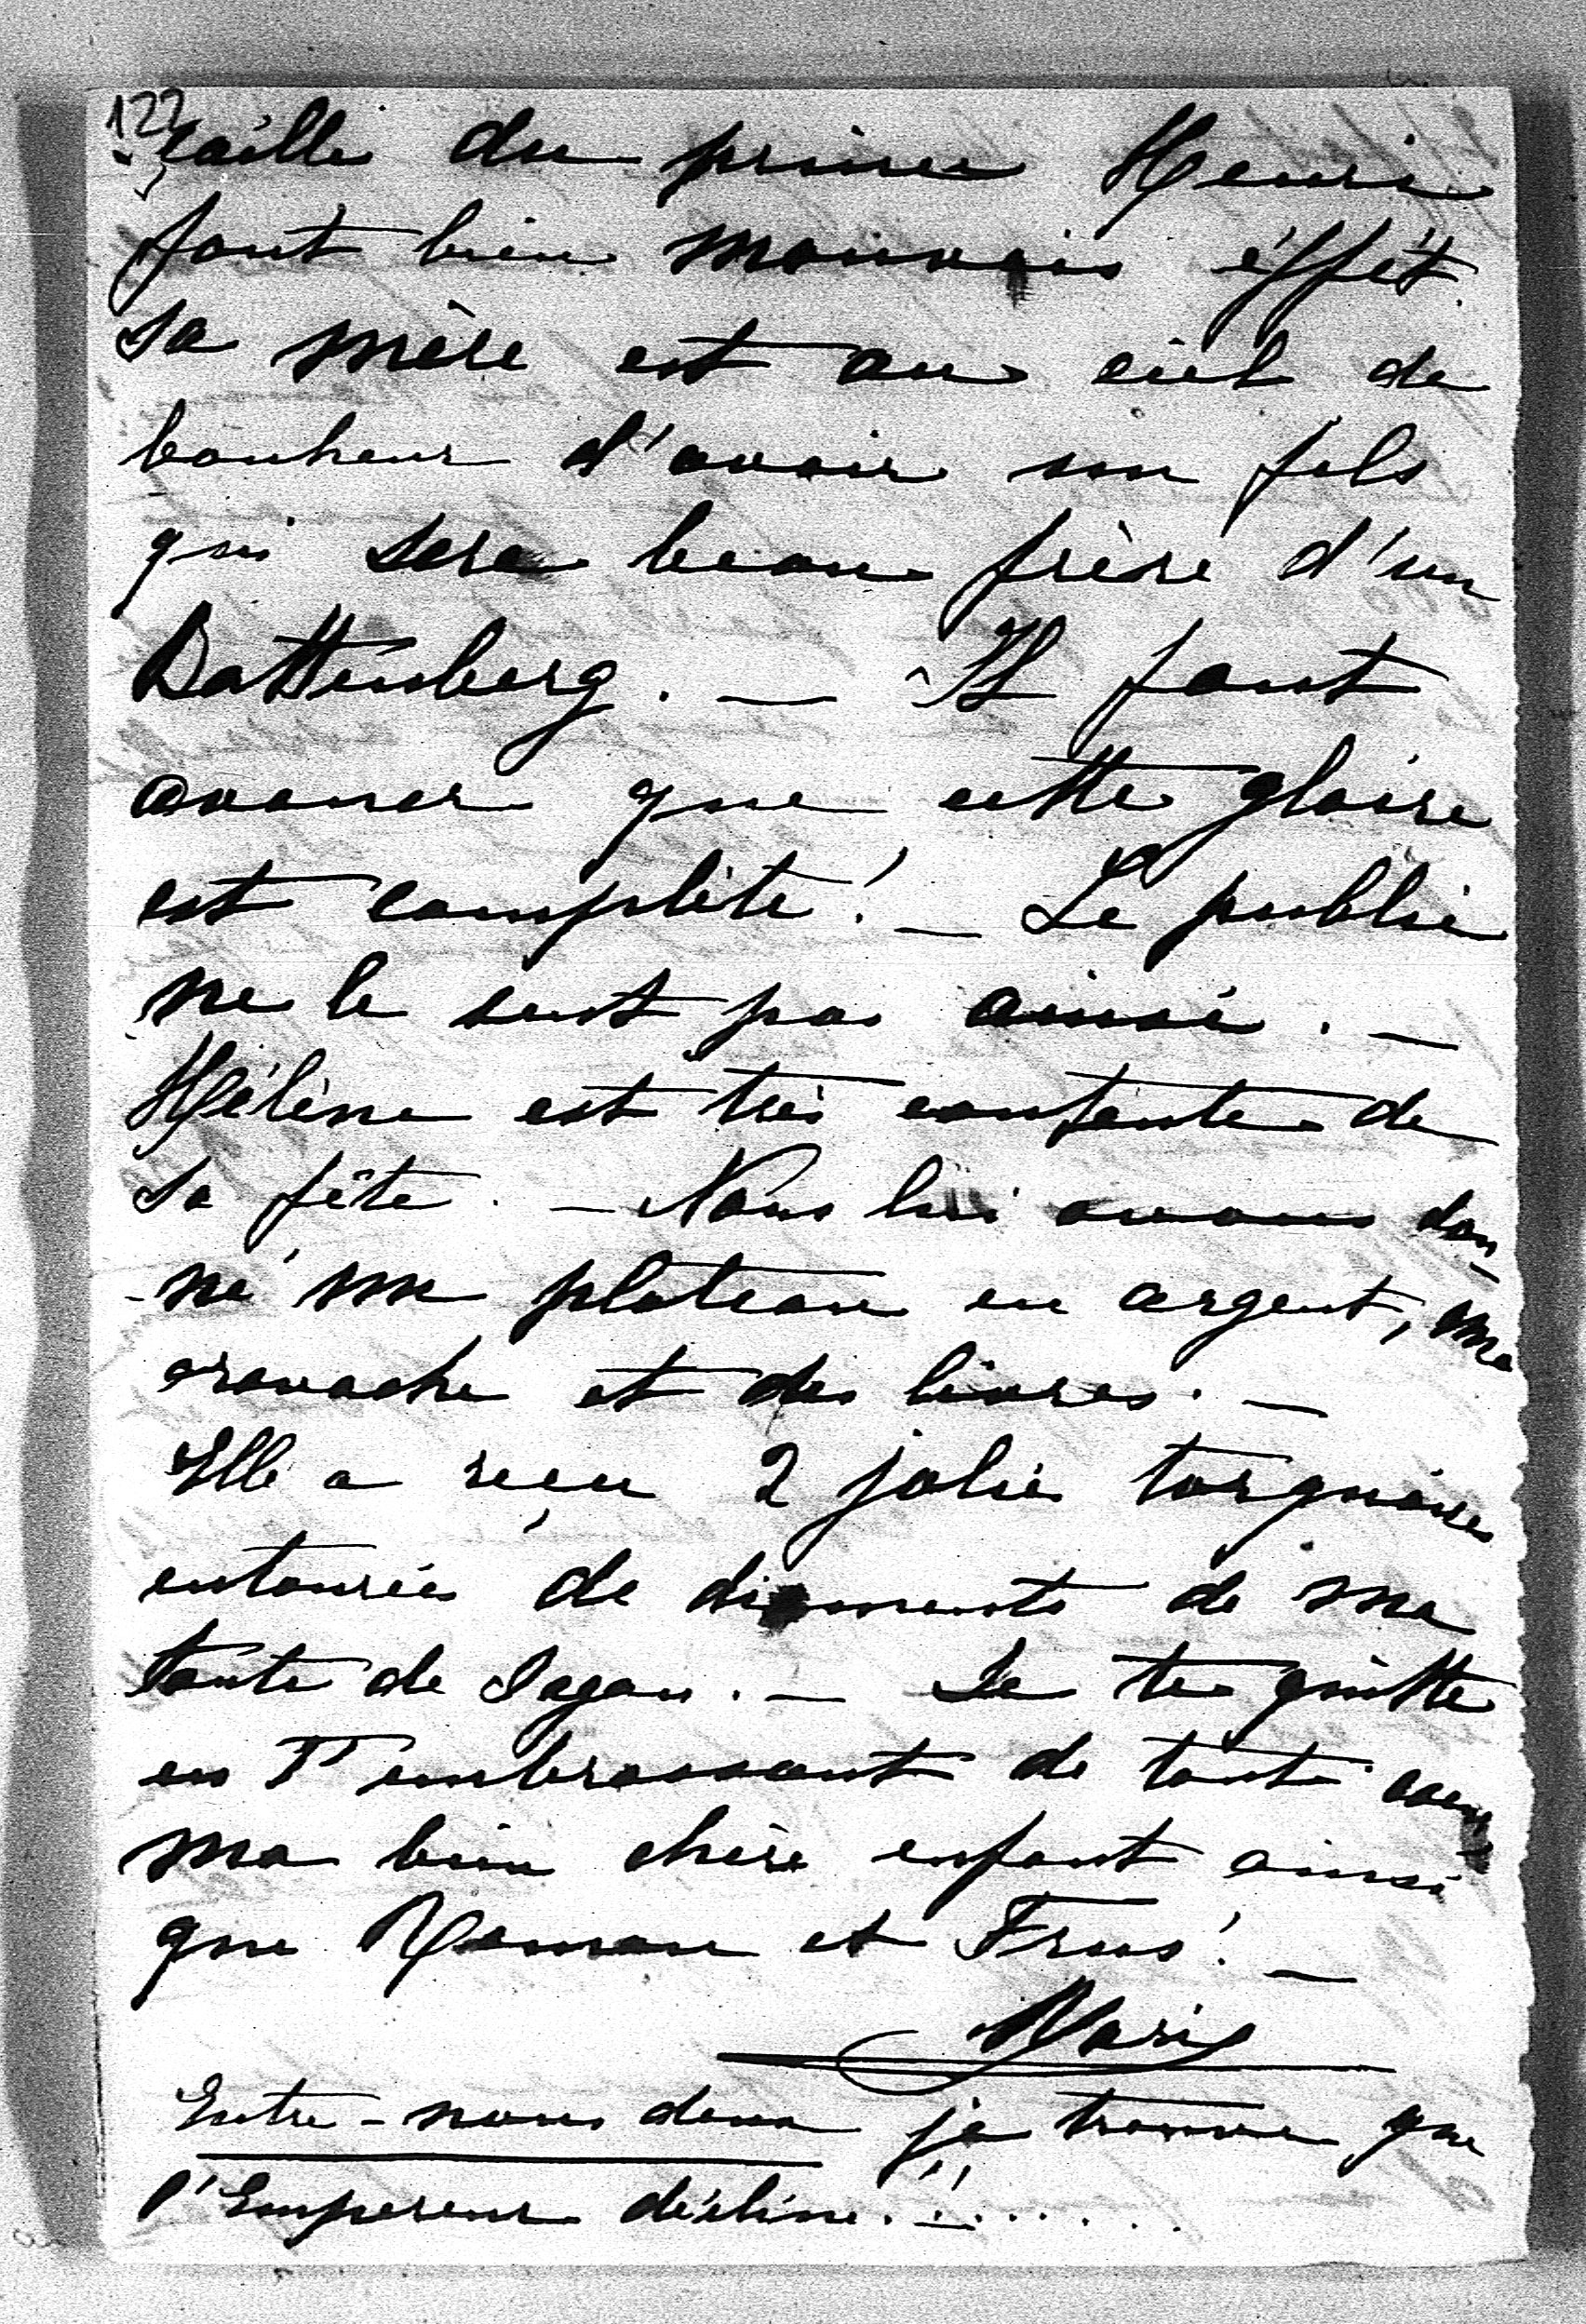 122
-çaille du prince Henri
font bien mauvais éffét.
sa mère est au ciel de
bonheur d'avoir un fils
qui sera beau frère d'un
Battenberg. — Il faut
avouer que cette gloire
est complète! — Le public
ne le sent pas ainsi. —
Hélène est très contente de
sa fête. — Nous lui avons don-
-né un plateau en argent, une
cravache et des livres. —
Elle a reçu 2 jolies
entourées de diamants de ma
tante de Sagan. — Je te quitte
en T'embrassant de tout coeur
ma bien chère enfant ainsi
que Maman et
Marie
Entre-nous deux je trouve que
l'Empereur décline.!.......